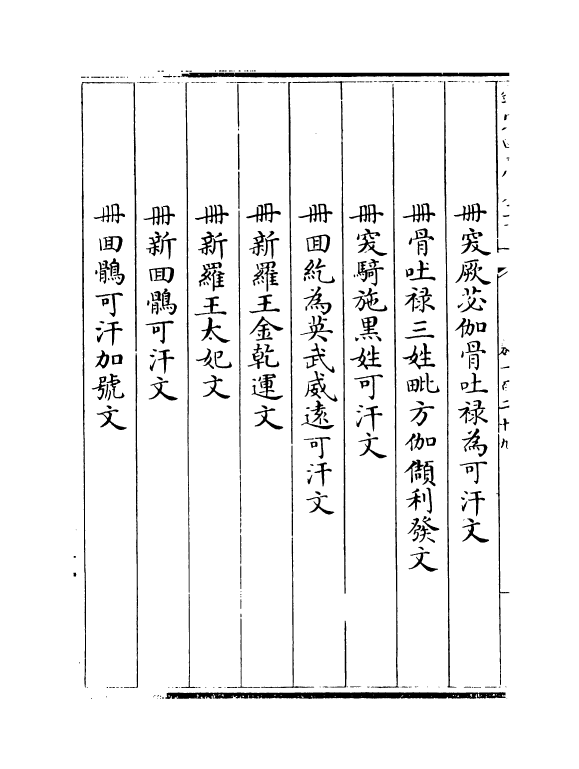 冊突厥苾伽骨吐禄為可汗文
冊骨吐禄三姓毗方伽頡利發文
冊突騎施黑姓可汗文
冊囬紇為英武威遠可汗文
冊新羅王金乾運文
冊新羅王太妃文
冊新囬鶻可汗文
冊囬鶻可汗加號文